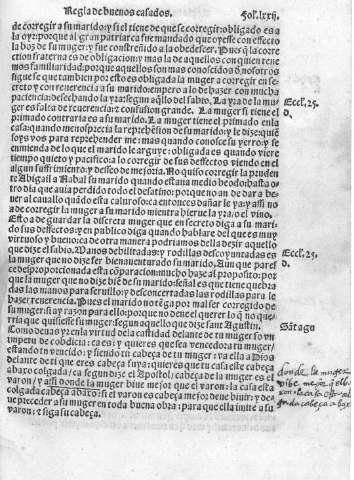 Regla de buenos casados. Fol. lxxij.
de corregir a su marido: y si el tiene de que se corregir: obligado es a
la oyr: porque al gran patriarca fue mandado que oyesse con effecto
la boz de su muger: y fue constreñido a la obedescer. Pues que la corre
ction fraterna es de obligacion: y mas la de aquellos con quien tene
mos familiaridad: porque aquellos son mas conoscidos d nosotros
sigue se que tambien por esto es obligada la muger a corregir en se
creto y con reuerencia a su marido: empero a lo de hazer con mucha
paciencia: desechando la yra segun aqllo del sabio. La yra de la mu
ger es falta de reuerencia: τ confusion grande. La muger si tiene el
primado contraria es a su marido. La muger tiene el primado en la
casa quando menosprecia la reprehẽsion de su marido: y le dize: quiẽ
soys vos para reprehender me: mas quando conosce su yerro: y se
enmienda de lo que el marido le arguye: obligada es quando viere
tiempo quieto y pacifico: a lo corregir de sus deffectos viendo en el
algun suffrimiento: y desseo de mejoria. No quiso corregir la pruden
te Abigail a Nabal su marido quando estaua medio beodo: hasta o
tro dia que auia perdido todo el desatino: porque no an de dar a be
uer al cauallo quãdo esta caluroso: a entonces dañar le ya: y assi no
a de corregir la muger a su marido mientra hierue la yra: o el vino.
Esto a de guardar la discreta muger que en secreto diga a su mari-
do sus deffectos: y en publico diga quando hablare del que es muy
virtuoso y bueno: ca de otra manera podriamos della dezir aquello
que dize el sabio. Manos debilitadas: y rodillas descoyuntadas es
la muger que no dize ser bienauenturado su marido. Aun que pares
ce desproporcionada esta cõparacion: mucho haze al proposito: por
que la muger que no dize biẽ de su marido: señal es que tiene quebra
das las manos para seruillo: y desconcertadas las rodillas para le
hazer reuerencia. Pues el marido no tẽga por mal ser corregido de
su muger: si ay razon para ello: porque no deue el querer lo q̃ no que-
rria que quisiesse su muger: segun aquello que dize sant Agustin.
Como deꝛas vẽcida la virtud dela castidad delante de tu muger so vn
impetu de cobdicia: ca es: y quieres que sea vencedora tu muger:
estando tu vencido: y siendo tu cabeça de tu muger: va ella a Dios
delante de ti que eres cabeça suya: quieres que tu casa este cabeça
abaxo colgada: ca segun dize el Apostol: cabeça de la muger es el
varon: y assi donde la muger biue mejor que el varon: la casa esta
colgada cabeça abaxo: si el varon es cabeça mejor deue biuir: y de
ue preceder a su muger en toda buena obra: para que ella imite a su
varon: τ siga su cabeça.
Eccl. 25.
d.
Eccl. 25.
d.
donde la muger
vibe mejor q el
colgada cabeça a bax